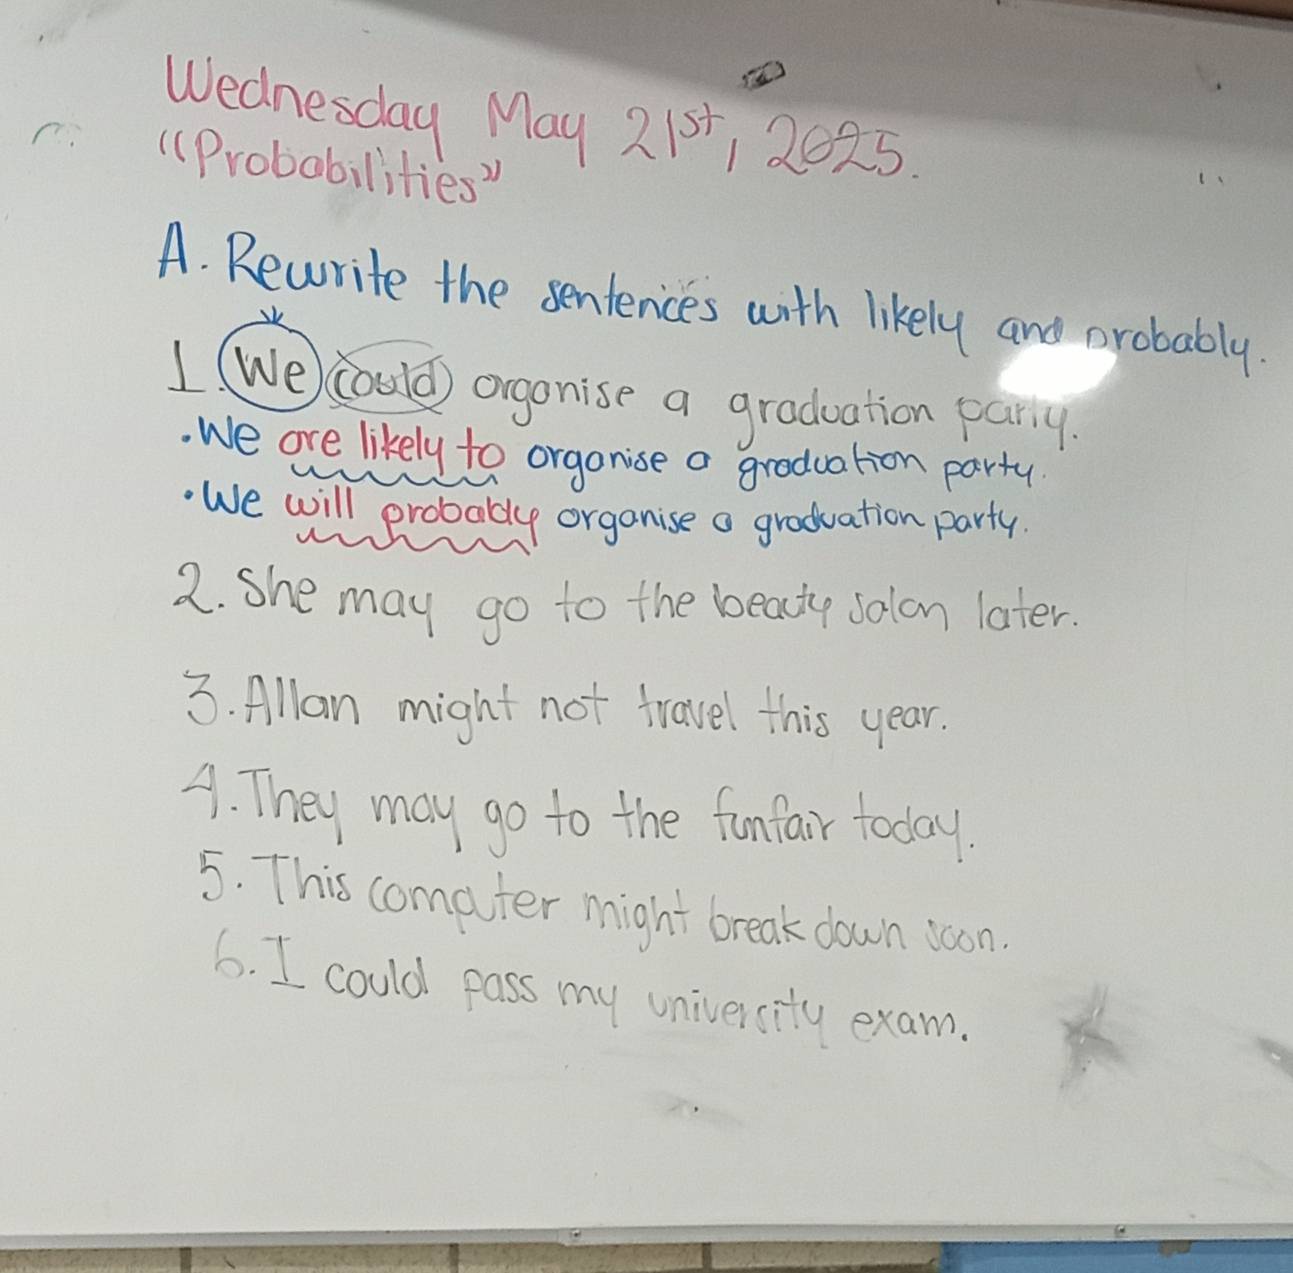 Wednesday May 21st, 2025.
"Probabilities"
A. Rewrite the sentences with likely and probably.
1. We could organise a graduation party.
• We are likely to organise a graduation party.
• We will probably organise a graduation party.
2. She may go to the beauty salon later.
3. Allan might not travel this year.
4. They may go to the funfair today.
5. This computer might break down soon.
6. I could pass my university exam.